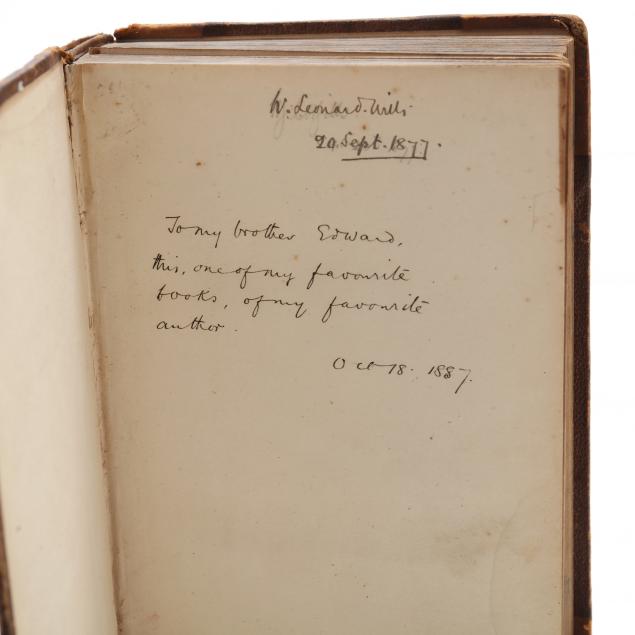 W. Leonard. Wills
20 Sept. 1877.
To my brother Edward,
this, one of my favourite
books, of my favourite
author.
Oct 18. 1887.